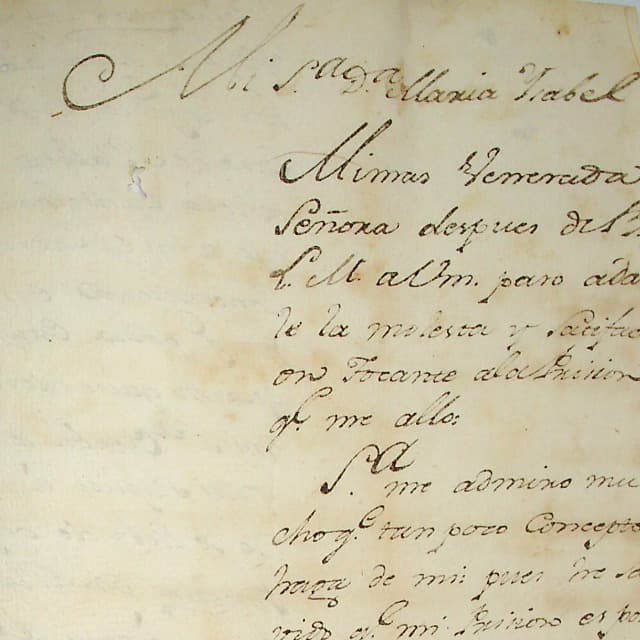 Mi S.ª D.ª Maria Ysabel
Mi mas Venerada
Señora despues de
L. M. a Vm. paso a da
le la molesta y Satisfac
on Tocante ala Prision
q.e me allo:
S.ª me admiro mu
cho q.e tan poco Concepto
haga de mi pues he sa
vido q.e mi Prision es po